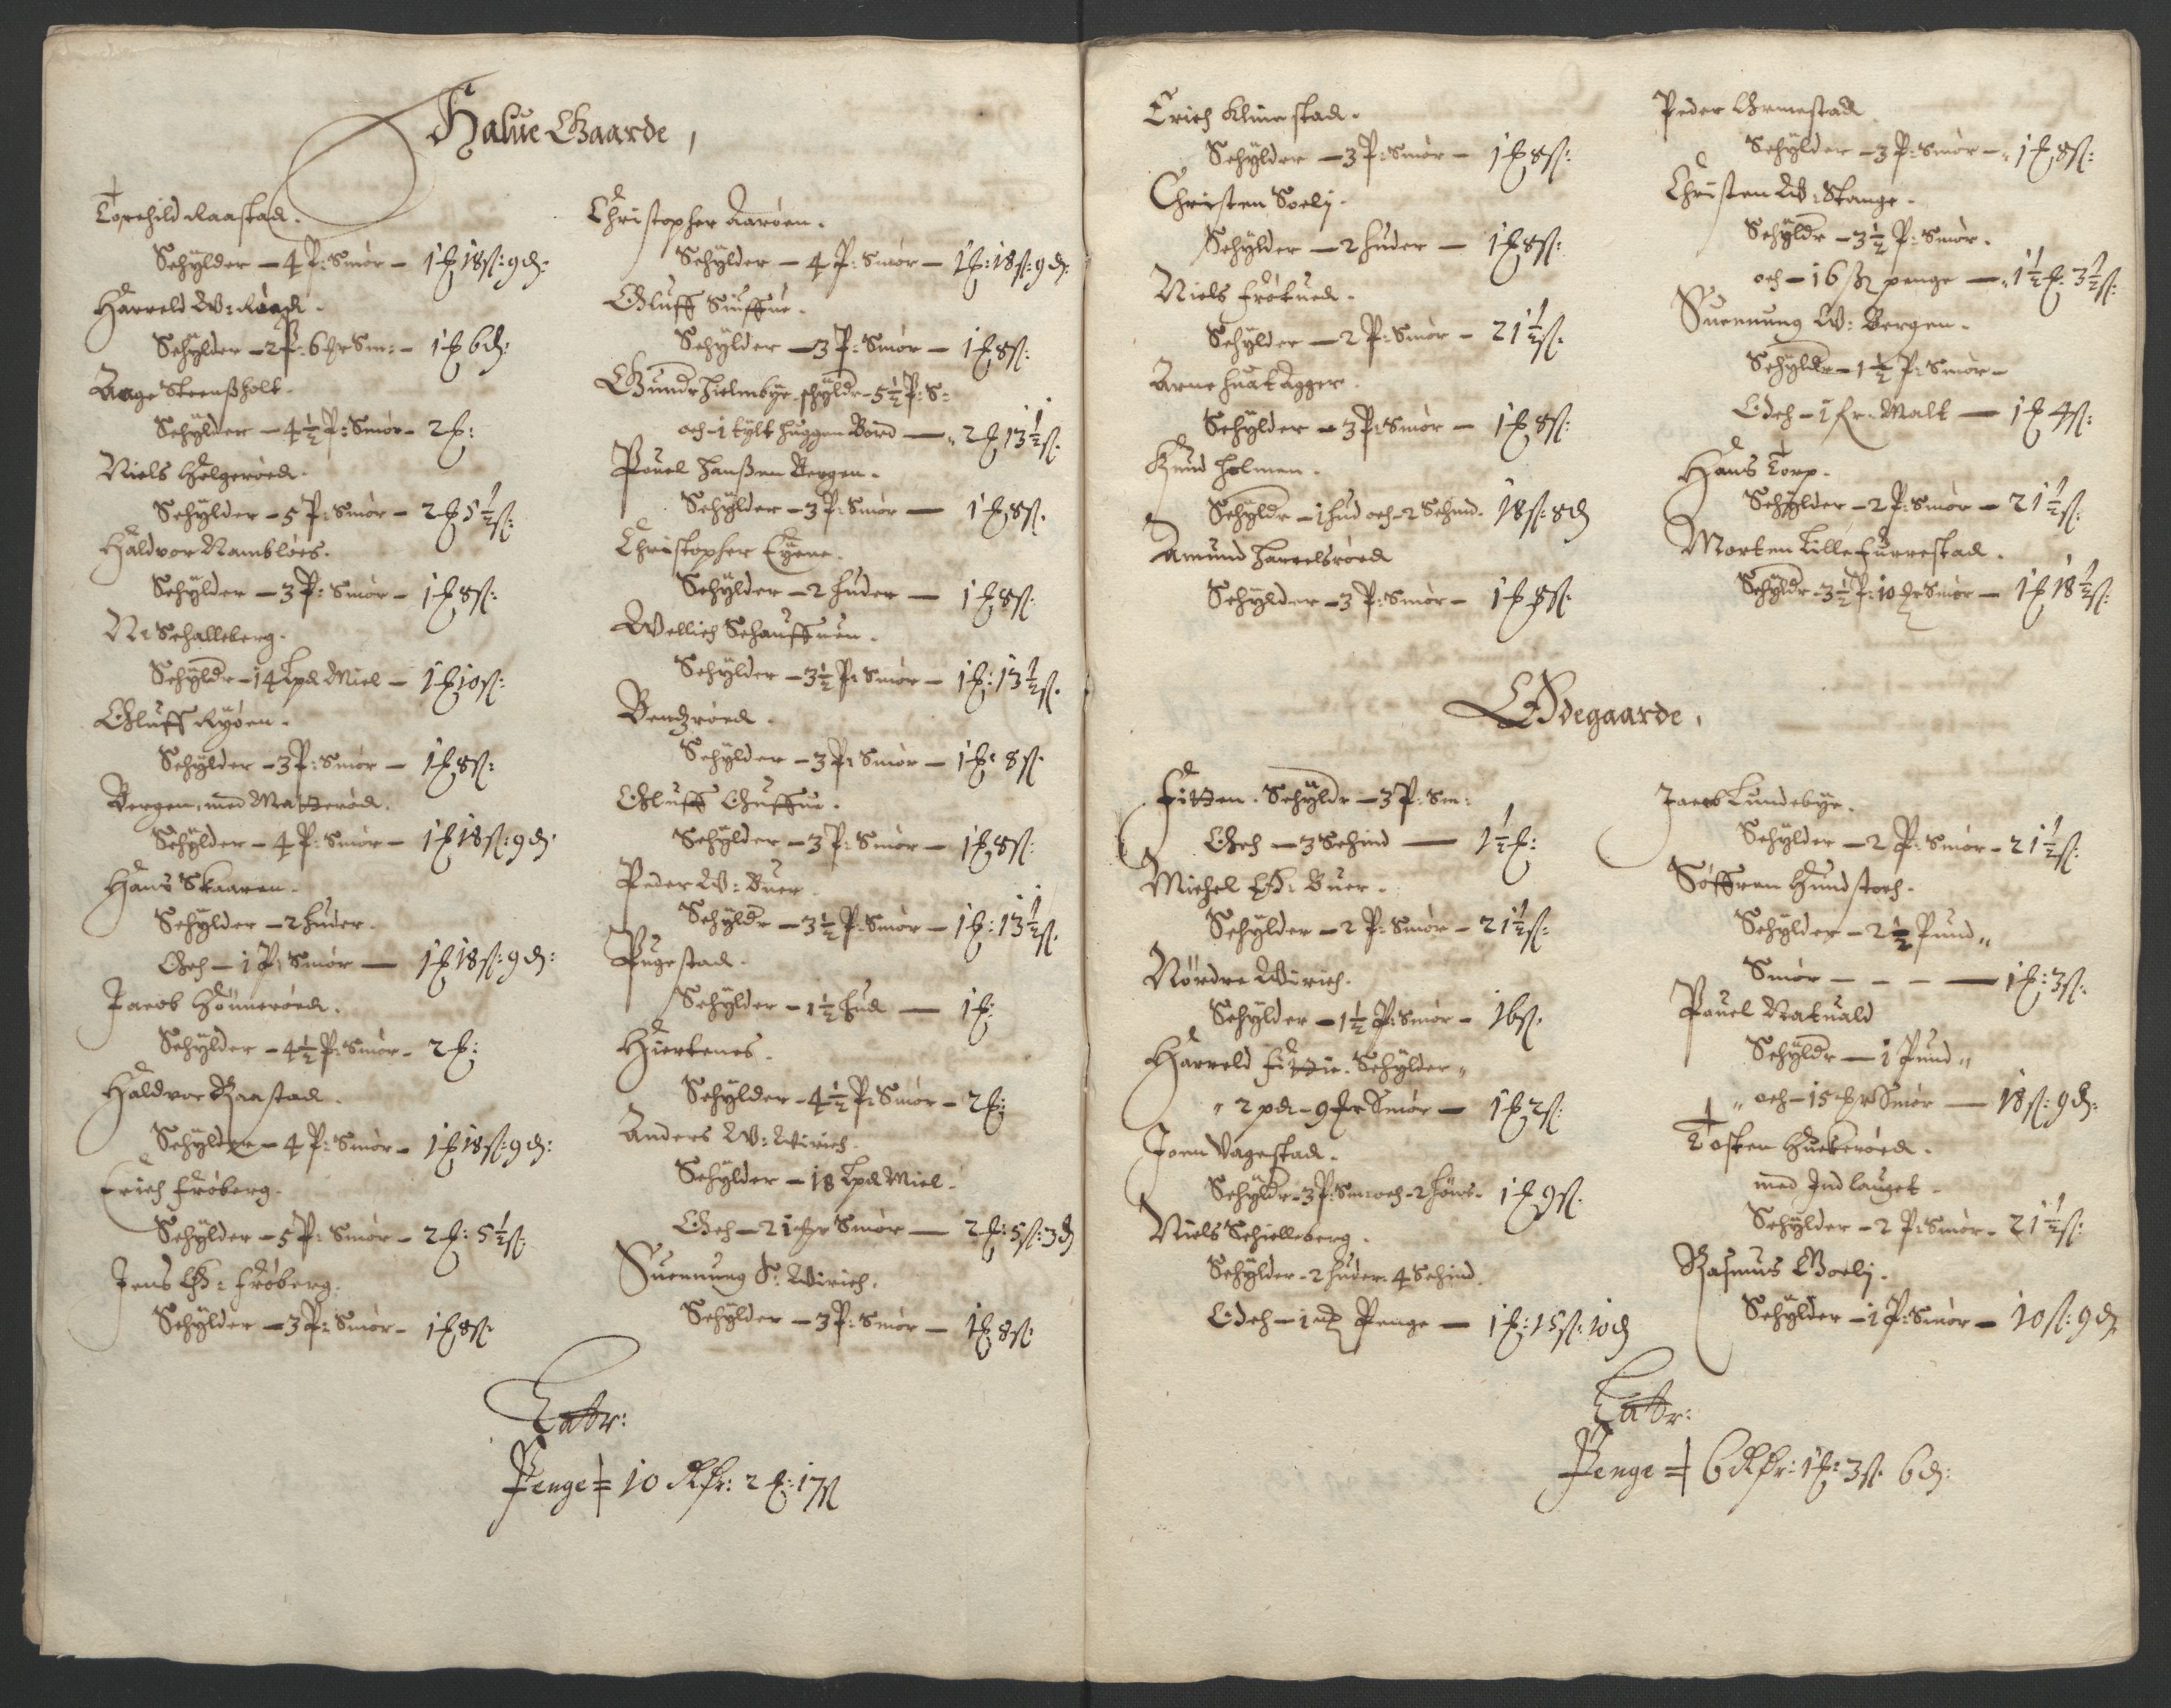 Halfue Gaarde,
Torchild Raastad.
Schylder – 4 P: Smør – 1 ℔ 18 ß: 9 d:
Harreld W: Røed.
Schylder – 2 P: 6 mr Sm: – 1 ℔ 6 d:
Aage Steenßholt.
Schylder – 4½ P: Smør – 2 ℔:
Niels Helgerøed.
Schylder – 5 P: Smør – 2 ℔ 5½ ß:
Haldvor Rambløes.
Schylder – 3 P: Smør – 1 ℔ 8 ß:
N: Schalleberg.
Schyldr – 14 Lpd Miel – 1 ℔ 10 ß:
Oluff Ryøen.
Schylder – 3 P: Smør – 1 ℔ 8 ß:
Bergen, med Matterød.
Schylder – 4 P: Smør – 1 ℔ 18 ß: 9 d:
Hans Skaaren.
Schylder – 2 huder.
Och – 1 P: Smør – 1 ℔ 18 ß: 9 d:
Jacob Hønnerøed.
Schylder – 4½ P: Smør – 2 ℔:
Haldvor Raastad.
Schylder – 4 P: Smør – 1 ℔ 18 ß: 9 d:
Erich Frøberg.
Schylder – 5 P: Smør – 2 ℔: 5½ ß:
Jens Ø: Frøberg.
Schylder – 3 P: Smør – 1 ℔ 8 ß:
Christopher Aarøen.
Schylder – 4 P: Smør – 1 ℔: 18 ß: 9 d:
Oluff Huffue.
Schylder – 3 P: Smør – 1 ℔ 8 ß:
Gundr Hielmbye. schyldr – 5½ P: S:
och – 1 tylt huggen Bord – 2 ℔ 13½ ß:
Pouel Hanßen Bergen.
Schylder – 3 P: Smør – 1 ℔ 8 ß.
Christopher Eyene.
Schylder – 2 huder – 1 ℔ 8 ß:
Wellich Schauffuen.
Schylder – 3½ P: Smør – 1 ℔: 13½ ß.
Bendzrøed.
Schylder – 3 P: Smør – 1 ℔: 8 ß.
Oluff Guffue.
Schylder – 3 P: Smør – 1 ℔ 8 ß:
Peder W: Buer.
Schyldr – 3½ P: Smør – 1 ℔: 13½ ß.
Pugestad.
Schylder – 1½ hud – 1 ℔:
Hiertenes.
Schylder – 4½ P: Smør – 2 ℔:
Anders W: Wirich.
Schylder – 18 Lpd Miel.
Och – 21 mr Smør – 2 ℔: 5 ß: 3 d
Suennung S: Wirich.
Schylder – 3 P: Smør – 1 ℔ 8 ß:
Latr:
Penge 10 Rdr: 2 ℔: 17 ß
Erich Klinestad.
Schylder – 3 P: Smør – 1 ℔ 8 ß:
Christen Solij.
Schylder – 2 huder – 1 ℔ 8 ß:
Niels Frøtued.
Schylder – 2 P: Smør – 21½ ß.
Arne Huatagger.
Schylder – 3 P: Smør – 1 ℔ 8 ß:
Knud Holmen.
Schyldr – 1 hud och – 2 Schind. 18 ß: 8 d
Amund Harrelsrøed
Schylder – 3 P: Smør – 1 ℔ 8 ß:
Peder Ormestad
Schylder – 3 P: Smør – 1 ℔ 8 ß:
Christen W: Stange.
Schyldr – 3½ P: Smør.
och – 16 ß penge – 1½ ℔: 3½ ß:
Suennung W: Bergen.
Schyldr – 1½ P: Smør –
Och – 1 hr. Malt – 1 ℔ 4 ß:
Hans Torp.
Schylder – 2 P: Smør – 21½ ß:
Morten Lille Furrestad.
Schyldr 3½ P: 10 mr Smør – 1 ℔ 18½ ß:
Ødegaarde,
Fitten. Schyldr – 3 P: Sm:
Och – 3 Schind – 1½ ℔:
Michel Ø: Buer.
Schylder – 2 P: Smør – 21½ ß:
Nordre Wirich.
Schylder – 1½ P: Smør – 16 ß.
Harreld Fittie. Schylder
2 pd – 9 mr Smør – 1 ℔ 2 ß:
Joen Vagestad.
Schyldr – 3 P: Sm: och – 2 høns – 1 ℔ 9 ß.
Niels Schielleberg.
Schylder – 2 huder. 4 Schind.
Och – 1 Penge – 1 ℔: 15 ß: 10 d
Jacob Lundebye.
Schylder – 2 P: Smør – 21½ ß:
Søffren Hundstoch.
Schylder – 2½ Pund
Smør – – – – 1 ℔: 3 ß:
Pouel Natuald
Schyldr – 1 Pund
och – 15 mr Smør – 18 ß: 9 d:
Tosten Huekerøed.
med Indlauget.
Schylder – 2 P: Smør – 21½ ß:
Rasmus Goelj.
Schylder – 1 P: Smør – 10 ß: 9 d
Latr:
Penge 6 Rdr: 1 ℔: 3 ß. 6 d: